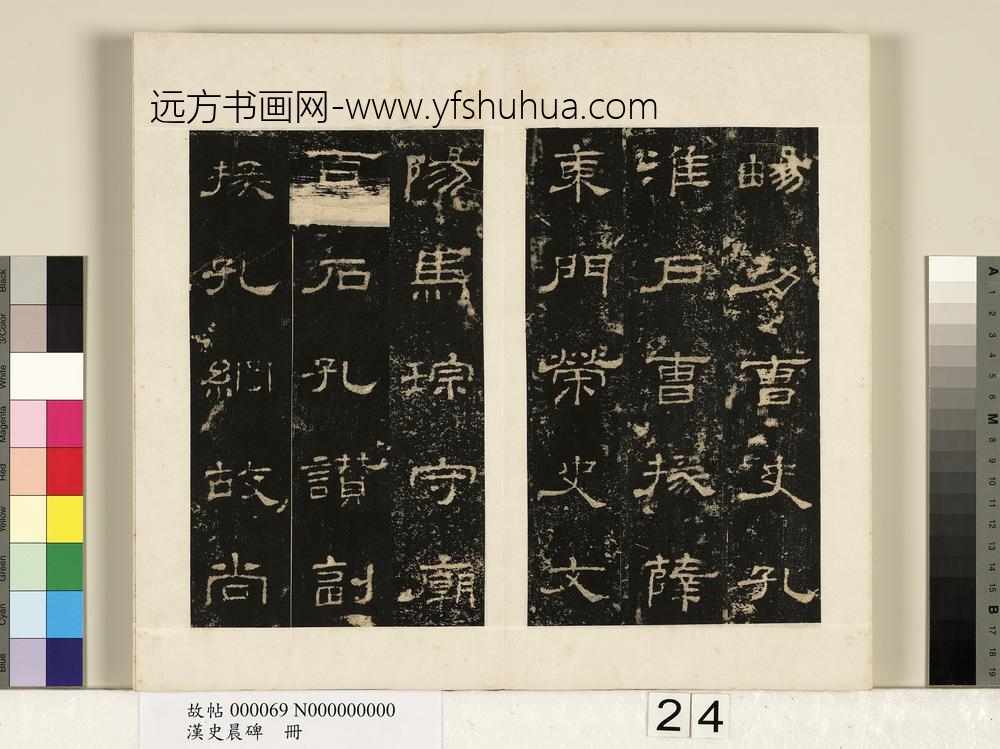 远方书画网-www.yfshuhua.com
暢功曹史孔
淮戶曹掾薛
東門榮史文
陽馬琮守廟
百石孔讃副
掾孔綱故尚
Black
3/Color
White
Magenta
Red
Yellow
Green
Cyan
Blue
A 1 2 3 4 5 6 M 8 9 10 11 12 13 14 15 B 17 18 19
故帖 000069 N000000000
漢史晨碑 冊
24